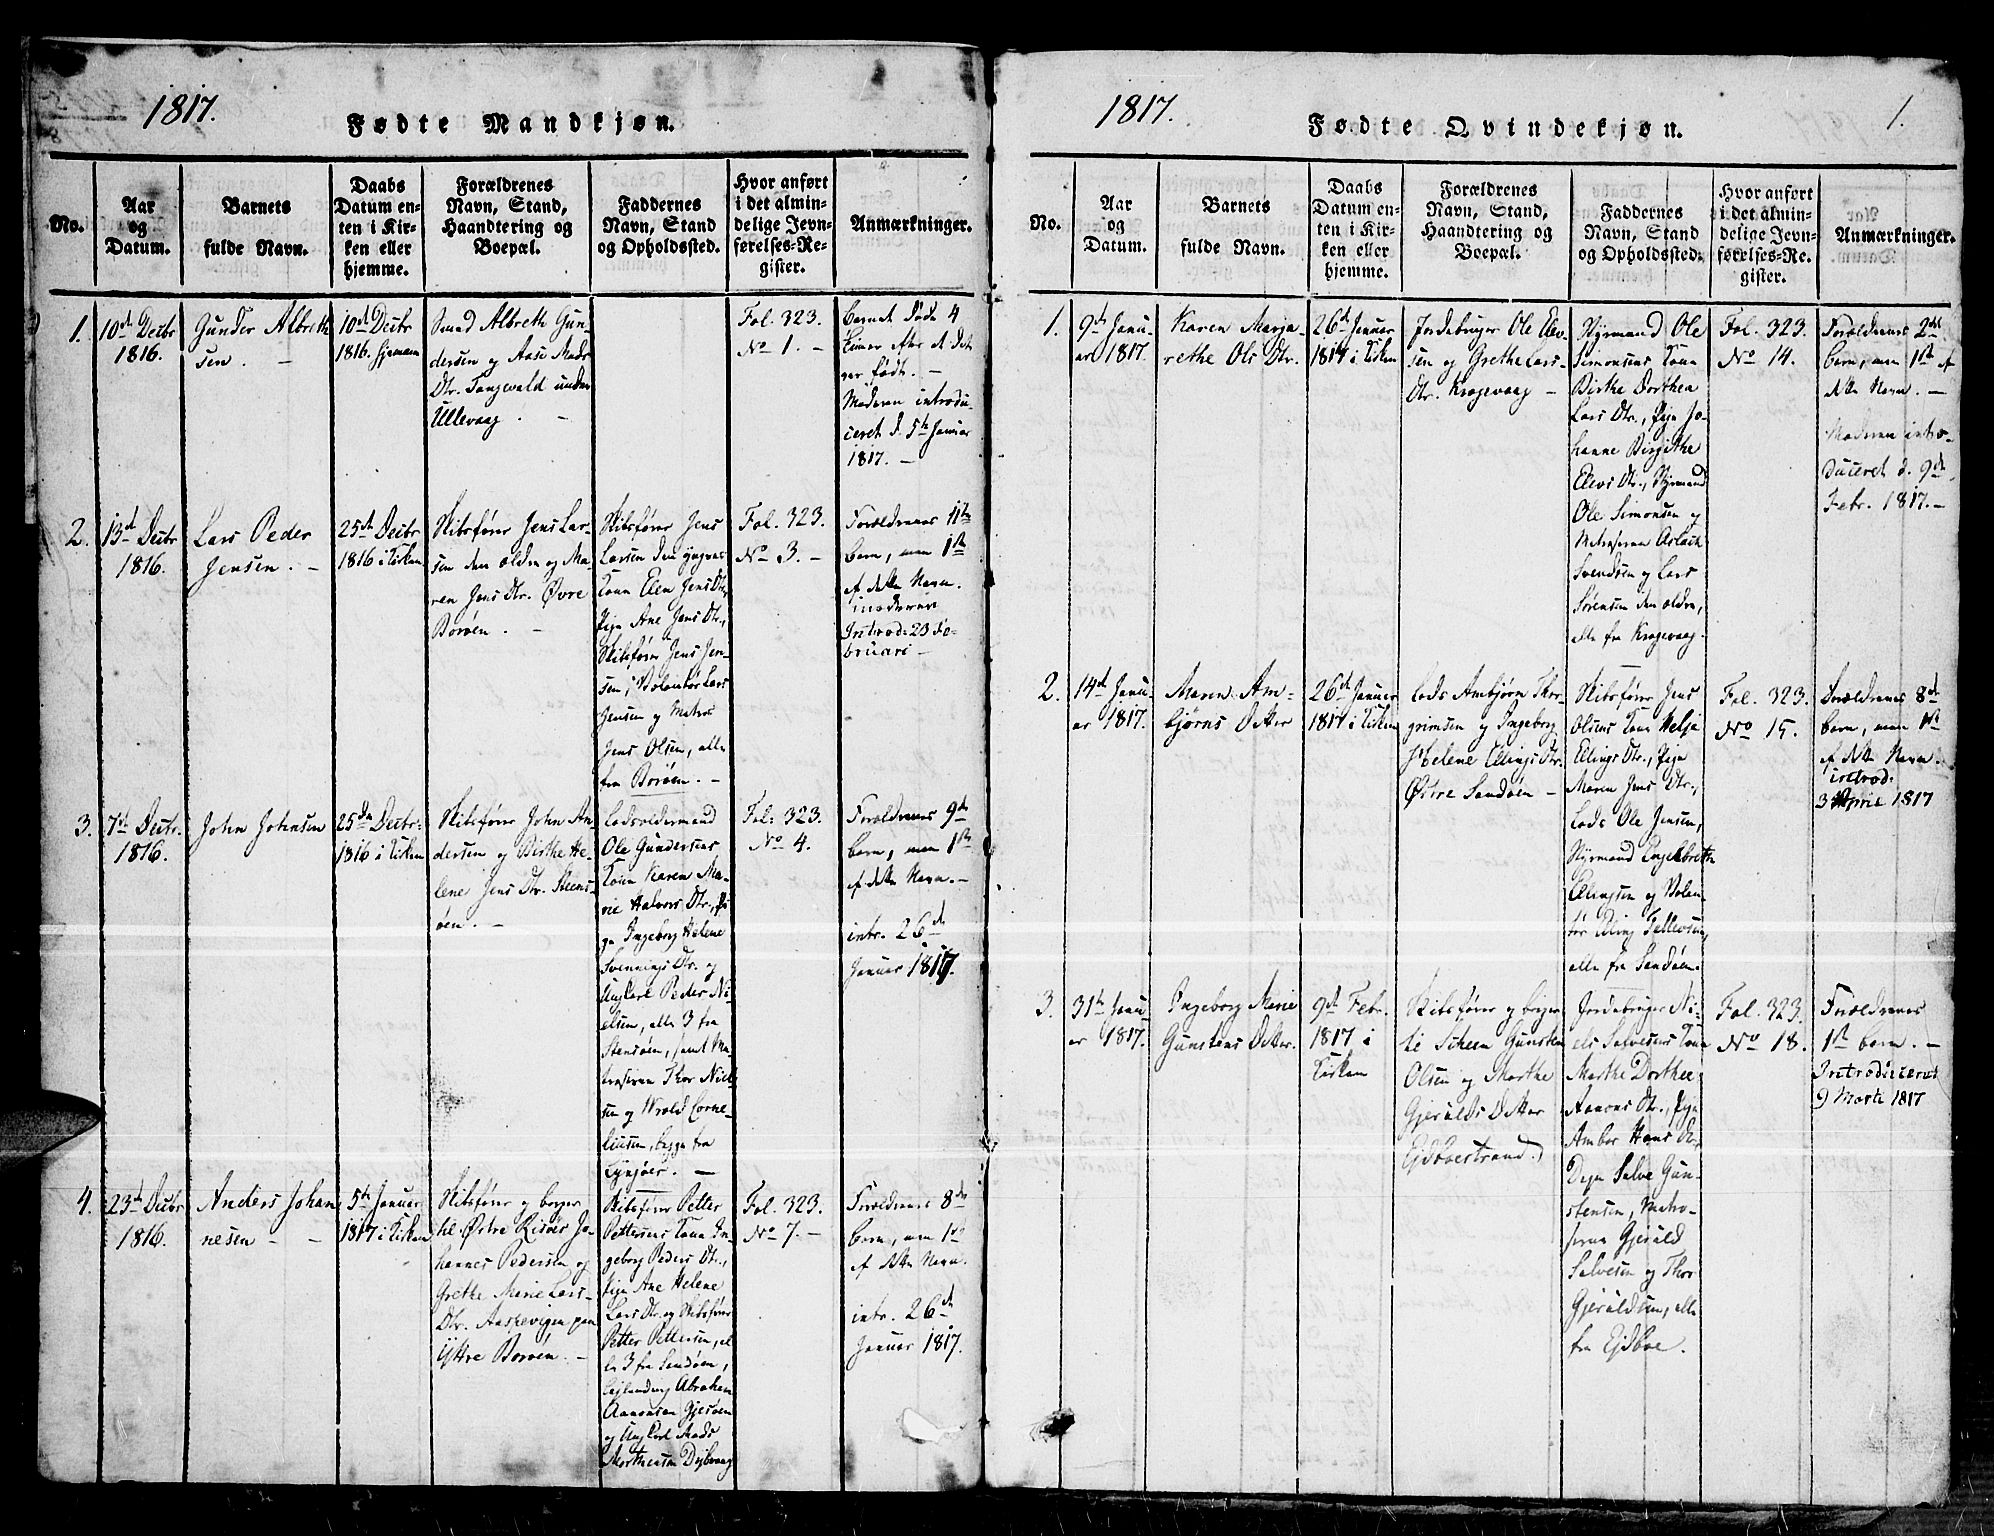 1817.
Fødte Mandkjøn.
No.
Aar
og
Datum.
Barnets
fulde Navn.
Daabs
Datum en-
ten i Kir-
ken eller
hjemme.
Forældrenes
Navn, Stand,
Haandtering og
Boepæl.
Faddernes
Navn, Stand
og Opholdssted.
Hvor anført
i det almin-
delige Jevn-
førelses-Re-
gister.
Anmærkninger.
1.
10de Decbr
1816.
Gunder Albreth
sen. -
10de Decbr
1816. hjemme
Smed Albreth Gun-
dersen og Aase Mads
Dtr. Tangevald under
Ullevaag. -
Fol. 323.
No 1. -
Barnet døde 4
Timer efter at det
var født. -
Moderen introdu-
ceret d. 5te Januar
1817. -
2.
13de Decbr
1816.
Lars Peder
Jensen. -
25de Decbr
1816 i Kirken
Skibsfører Jens Lar-
sen den ældre og Ma-
ren Jens Dtr. Øvre
Borøen. -
Skibsfører Jens
Larsen den yngres
Kone Elen Jens Dtr,
Pige Ane Jens Dtr,
Skibsfører Jens Jen-
sen, Volontør Lars
Jensen og Matros
Jens Olsen, alle
fra Borøen. -
Fol. 323.
No 3. -
Forældrenes 11te
barn, men 1ste
af dette Navn.
moderen
Introd: 23 Fe-
bruari -
3.
7de Decbr.
1816.
John Johnsen
25de Decbr.
1816 i Kirken
Skibsfører John An-
dersen og Birthe He-
lene Jens Dtr. Steens-
øen. -
Lodsoldermand
Ole Gundersens
Kone Karen Ma-
rie Halvors Dtr., Pi-
ge Ingeborg Helene
Svennings Dtr. og
Ungkarl Peder Ni-
elsen, alle 3 fra
Stensøen, samt Ma-
troserne Thor Niel-
sen og Wrold Corne-
liussen, begge fra
Lyngøer. -
Fol: 323.
No 4.
Forældrenes 9de
barn, men 1ste
af dette Navn. -
intr. 26de
Januar 1817.
4.
23de Decbr
1816.
Anders Johan
nesen - -
5te Januar
1817 i Kirken
Skibsfører og borger
til Østre Risøer Jo-
hannes Pedersen og
Grethe Marie Lars-
Dtr. Aaskevigen paa
Yttre Borøen. -
Skibsfører Petter
Pettersens Kone In-
geborg Peders Dtr.,
Pige Ane Helene
Lars Dtr. og Skibsfører
Petter Pettersen, al-
le 3 fra Sandøen,
Lejlændng Abraham
Aanonsen Gjesøen
og Ungkarl Mads
Mortensen Dybvaag
Fol. 323.
No 7. -
Forældrenes 8de
barn, men 1ste
af dette Navn.
intr. 26de
Januar 1817.
1817.
Fødte Qvindekjøn.
1.
No.
Aar
og
Datum.
Barnets
fulde Navn.
Daabs
Datum en-
ten i Kir-
ken eller
hjemme.
Forældrenes
Navn, Stand,
Haandtering og
Boepæl.
Faddernes
Navn, Stand
og Opholdssted.
Hvor anført
i det almin-
delige Jevn-
førelses-Re-
gister.
Anmærkninger.
1.
9de Janu-
ar 1817.
Karen Marga
rethe Ols Dtr.
26de Januar
1817 i Kirken
Jordebruger Ole Elev-
sen og Grethe Lars-
Dtr. Kragevaag -
Styrmand Ole
Simonsens Kone
Birthe Dorthea
Lars Dtr., Pige Jo-
hanne Birgithe
Elevs Dtr., Styrmand
Ole Simonsen og
Matroserne Aslach
Svendsen og Lars
Sørensen den ældre,
alle fra Kragevaag.
Fol. 323.
No 14.
Forældrenes 2det
barn, men 1ste af
dette Navn. -
Moderen intro-
duceret d. 9de
Febr. 1817. -
2.
14de Janu-
ar 1817.
Maren Am-
bjørns Datter
26de Januar
1817 i Kirken
Lods Ambjørn Thor-
grimsen og Ingeborg
Helene Ellings Dtr.
Østre Sandøen -
Skibsfører Jens
Olsens Kone Helje
Ellings Dtr., Pige
Maren Jens Dtr.,
Lods Ole Jensen,
Styrmand Ingelbreth
Ellingsen og Volon-
tør Elling Tellevsen,
alle fra Sandøen.
Fol. 323.
No 15.
Forældrenes 8de
barn, men 1ste
af dette Navn.
introd:
3 Aprie 1817
3.
31te Janu-
ar 1817.
Ingeborg Marie
Gunstens Datter.
9de Febr.
1817 i
Kirken
Skibsfører og borger
til Scheen Gunsten
Olsen og Marthe
Gjeralds Datter
Ejdboestrand.
Jordebruger Ni-
els Salvesens Kone
Marthe Dorthea
Aanons Dtr., Pige
Ambor Hans Dtr,
Dreng Salve Gun-
stensen, Matro-
serne Gjerald
Salvesen og Thor
Gjeraldsen, alle
fra Ejdboe.
Fol. 323.
No 18.
Forældrenes
1ste barn. -
Introduceret
9 Marti 1817